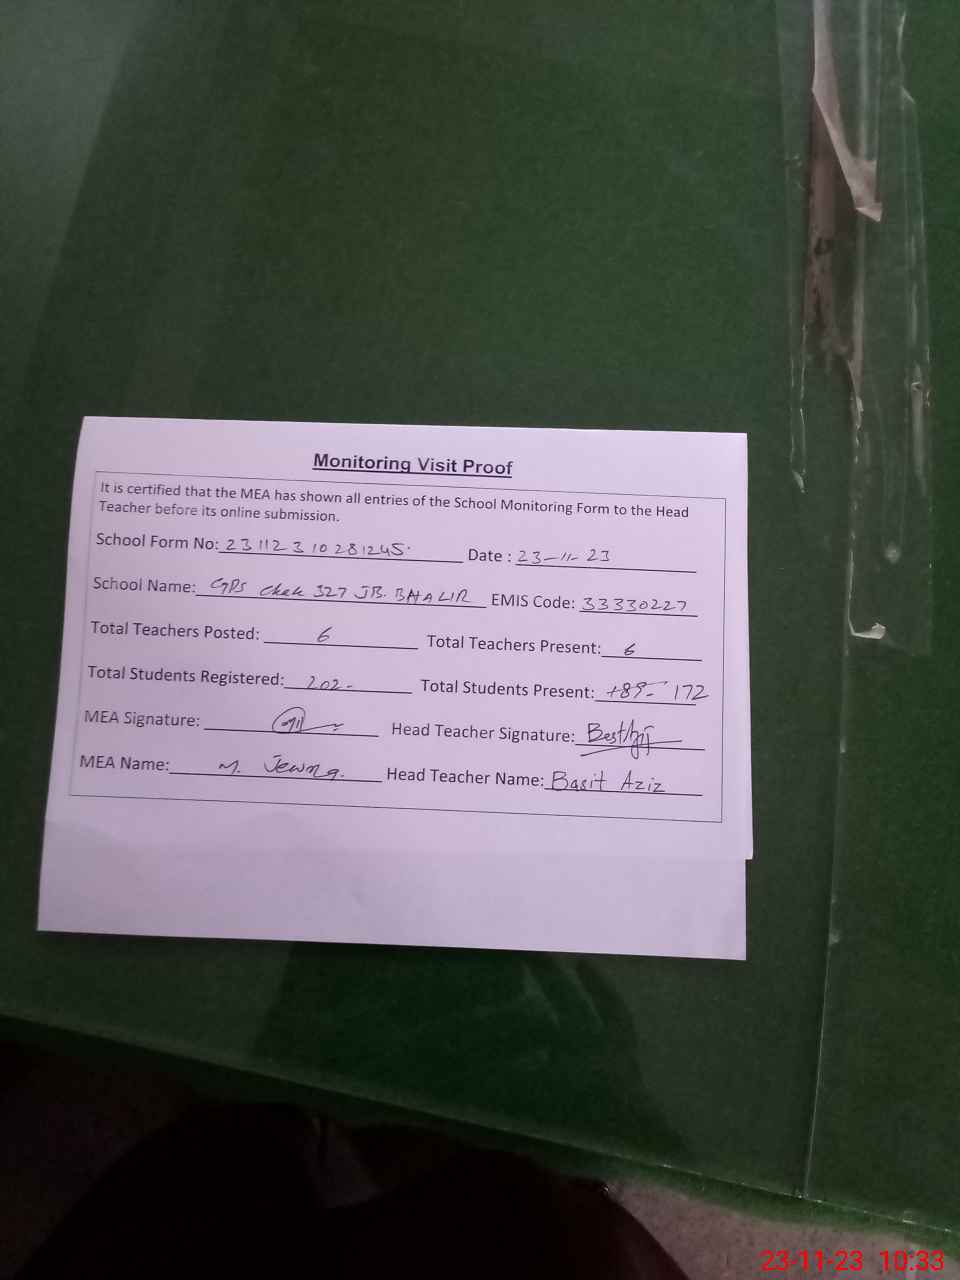 Monitoring Visit Proof
It is certified that the MEA has shown all entries of the School Monitoring Form to the Head
Teacher before its online submission.
School Form No: 23112310281245 Date : 23-11-23
School Name: GPS Chak 327 JB. BHALIR EMIS Code: 33330227
Total Teachers Posted: 6 Total Teachers Present: 6
Total Students Registered: 202- Total Students Present: 172
MEA Signature: Head Teacher Signature:
MEA Name: M. Head Teacher Name: Basit Aziz
23-11-23 10:33